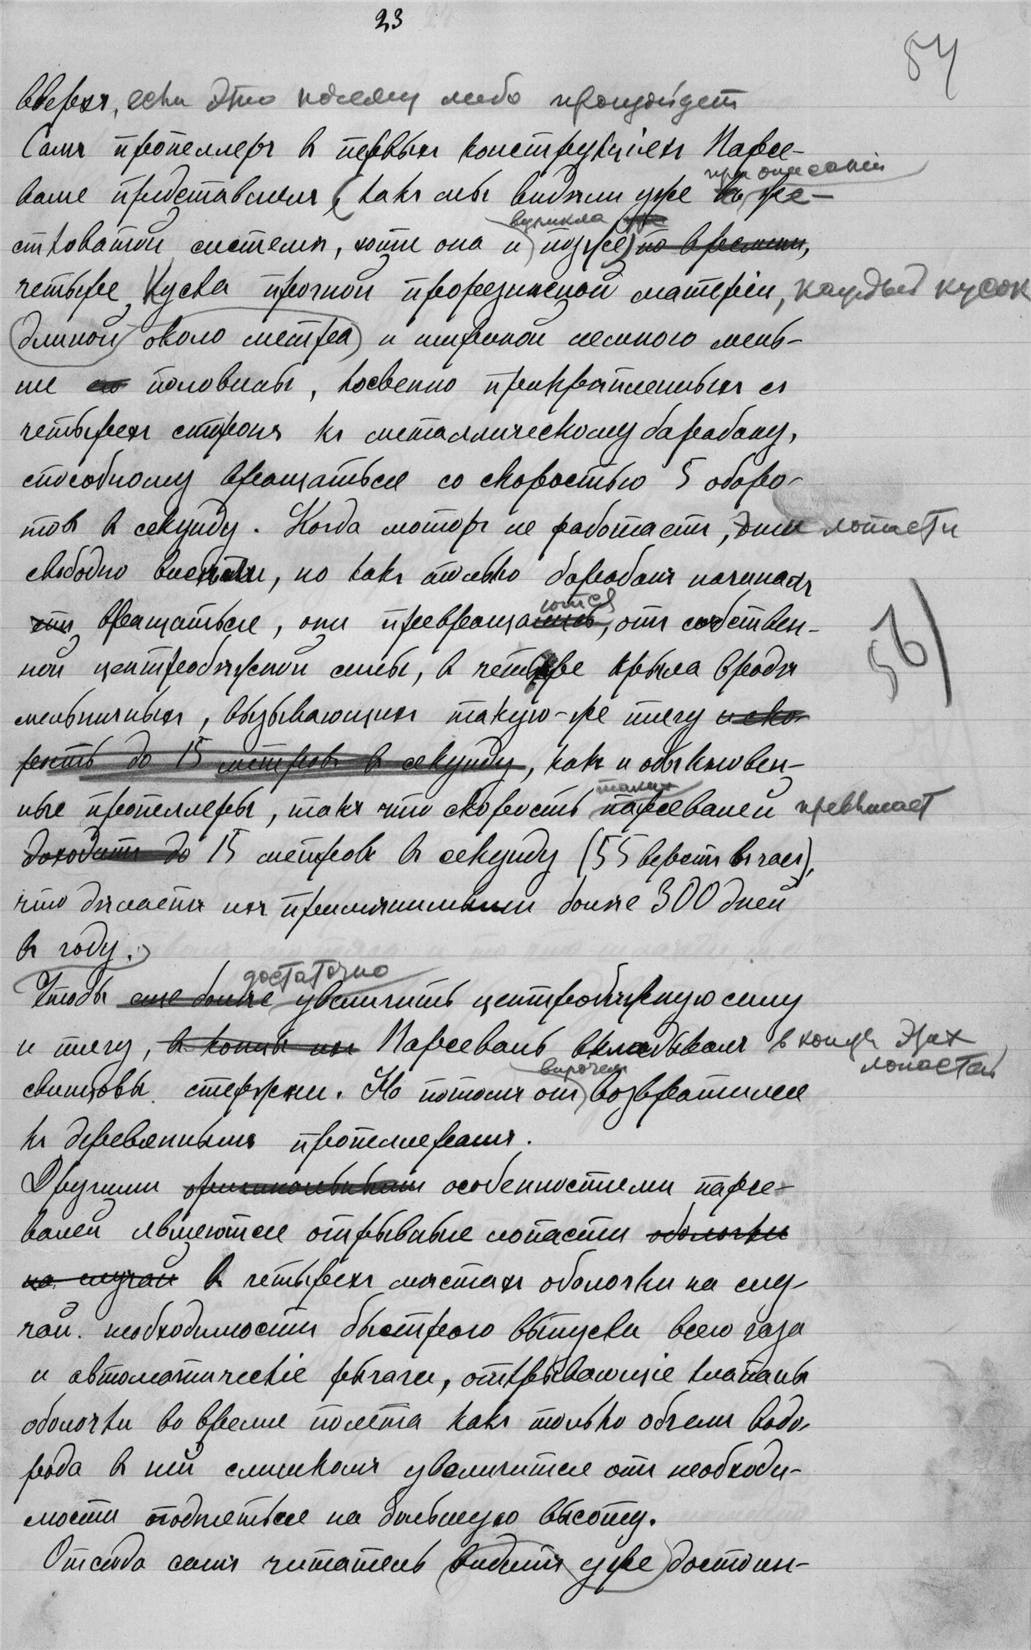 23
54
вверхъ, если это почему либо произойдетъ
Самъ пропеллеръ въ первыхъ конструкціяхъ Парсе-
валя представлялъ (какъ мы видѣли уже при описаніи же-
стковатой системы, хотя она и возникла позже) по времени,
четыре куска прочной прорезиненной матеріи, каждый кусокъ
длиной около метра и шириной немного мень-
ше половины, косвенно прикрѣпленныхъ съ
четырехъ сторонъ къ металлическому барабану,
способному вращаться со скоростью 5 оборо-
товъ въ секунду. Когда моторъ не работаетъ, эти лопасти
свободно висятъ, но какъ только барабанъ начиналъ
вращаться, они превращаются, отъ собствен-
ной центробѣжной силы, въ четыре крыла вродѣ
мельничныхъ, вызывающихъ такую-же тягу и ско-
рость до 15 метровъ въ секунду, какъ и обыкновен-
ные пропеллеры, такъ что скорость такихъ парсевалей превышаетъ
доходитъ до 15 метровъ въ секунду (55 верстъ въ часъ),
что дѣлаетъ ихъ примѣнимыми болѣе 300 дней
въ году.
Чтобы еще болѣе достаточно увеличить центробѣжную силу
и тягу, въ концы ихъ Парсеваль вкладывалъ въ концы этихъ лопастей
свинцовые стержни. Но потомъ онъ впрочемъ возвратился
къ деревяннымъ пропеллерамъ.
Другими оригинальными особенностями парсе-
валей являются отрывные лопасти оболочки
на случай въ четырехъ мѣстахъ оболочки на слу-
чай необходимости быстраго выпуска всего газа
и автоматическіе рычаги, открывающіе клапаны
оболочки во время полета какъ только объемъ водо-
рода въ ней слишкомъ увеличится отъ необходи-
мости подняться на большую высоту.
Отсюда самъ читатель видитъ уже достоин-
56